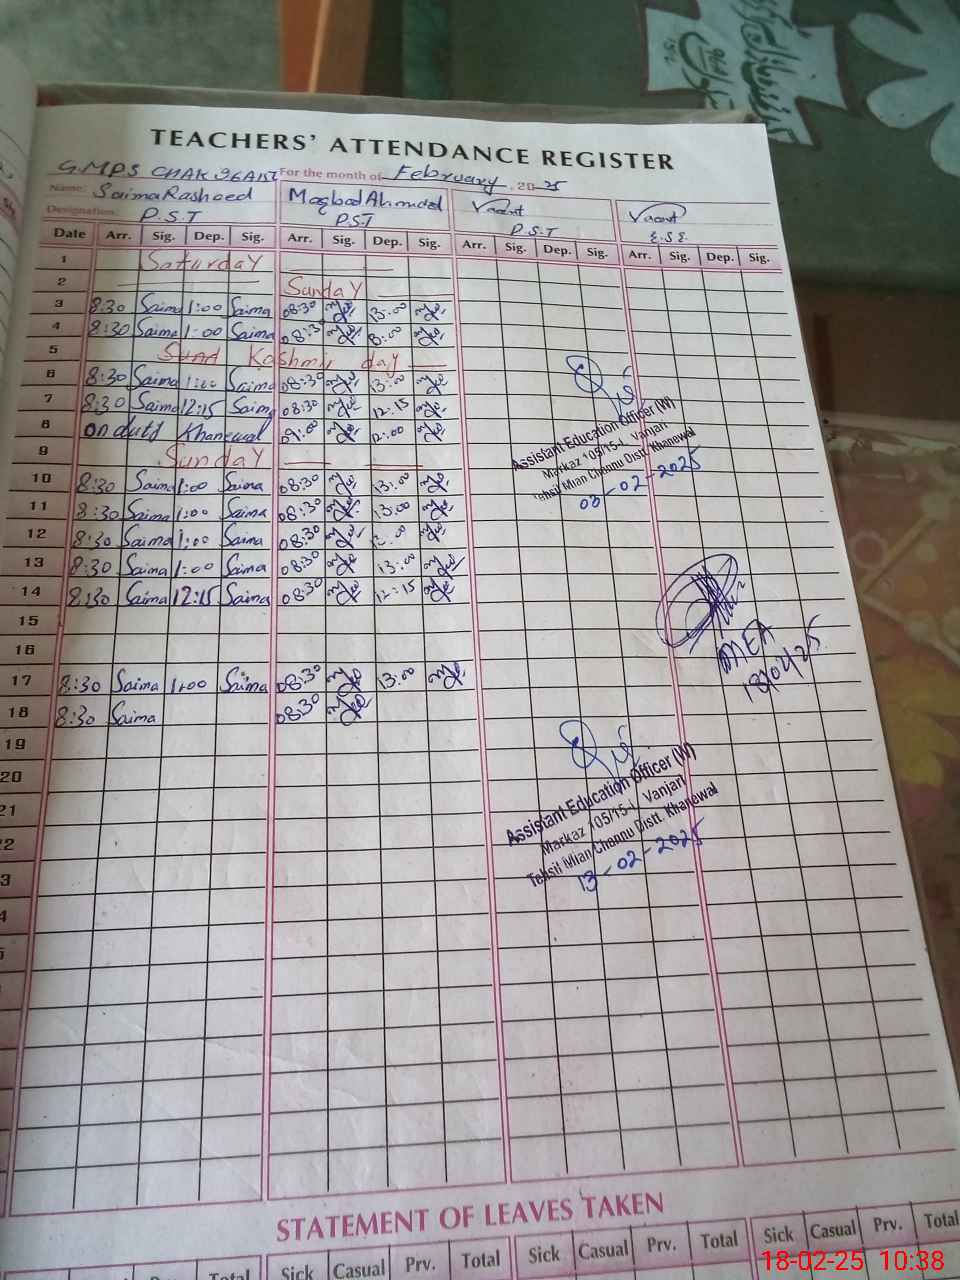 TEACHERS' ATTENDANCE REGISTER
G.M.P.S CHAK For the month of February, 2025
Name: Saima Rasheed Maqbool Ahmed Vacant Vacant
Designation: P.S.T P.S.T P.S.T E.S.E.
Date Arr. Sig. Dep. Sig. Arr. Sig. Dep. Sig. Arr. Sig. Dep. Sig. Arr. Sig. Dep. Sig.
1 Saturday
2 Sunday
3 8:30 Saima 1:00 Saima 08:30 13:00
4 8:30 Saima 1:00 Saima 08:30
5 Kashmir day
6 8:30 Saima 1:00 Saima 08:30 13:00
7 8:30 Saima 12:15 Saima 08:30 12:15
8 on duty Khanewal 09:00
9 Sunday
10 8:30 Saima 1:00 Saima 08:30 13:00
11 8:30 Saima 1:00 Saima 08:30 13:00
12 8:30 Saima 1:00 Saima 08:30
13 8:30 Saima 1:00 Saima 08:30 13:00
14 8:30 Saima 12:15 Saima 08:30 12:15
15
16
17 8:30 Saima 1:00 Saima 08:30 13:00
18 8:30 Saima 08:30
19
20
21
Assistant Education Officer (W)
Markaz 105/15-L, Vanjari
Tehsil Mian Channu Distt. Khanewal
03-02-2025
MEA
Assistant Education Officer (W)
Markaz 105/15-L, Vanjari
Tehsil Mian Channu Distt. Khanewal
13-02-2025
STATEMENT OF LEAVES TAKEN
Sick Casual Prv. Total Sick Casual Prv. Total Sick Casual Prv. Total
18-02-25 10:38